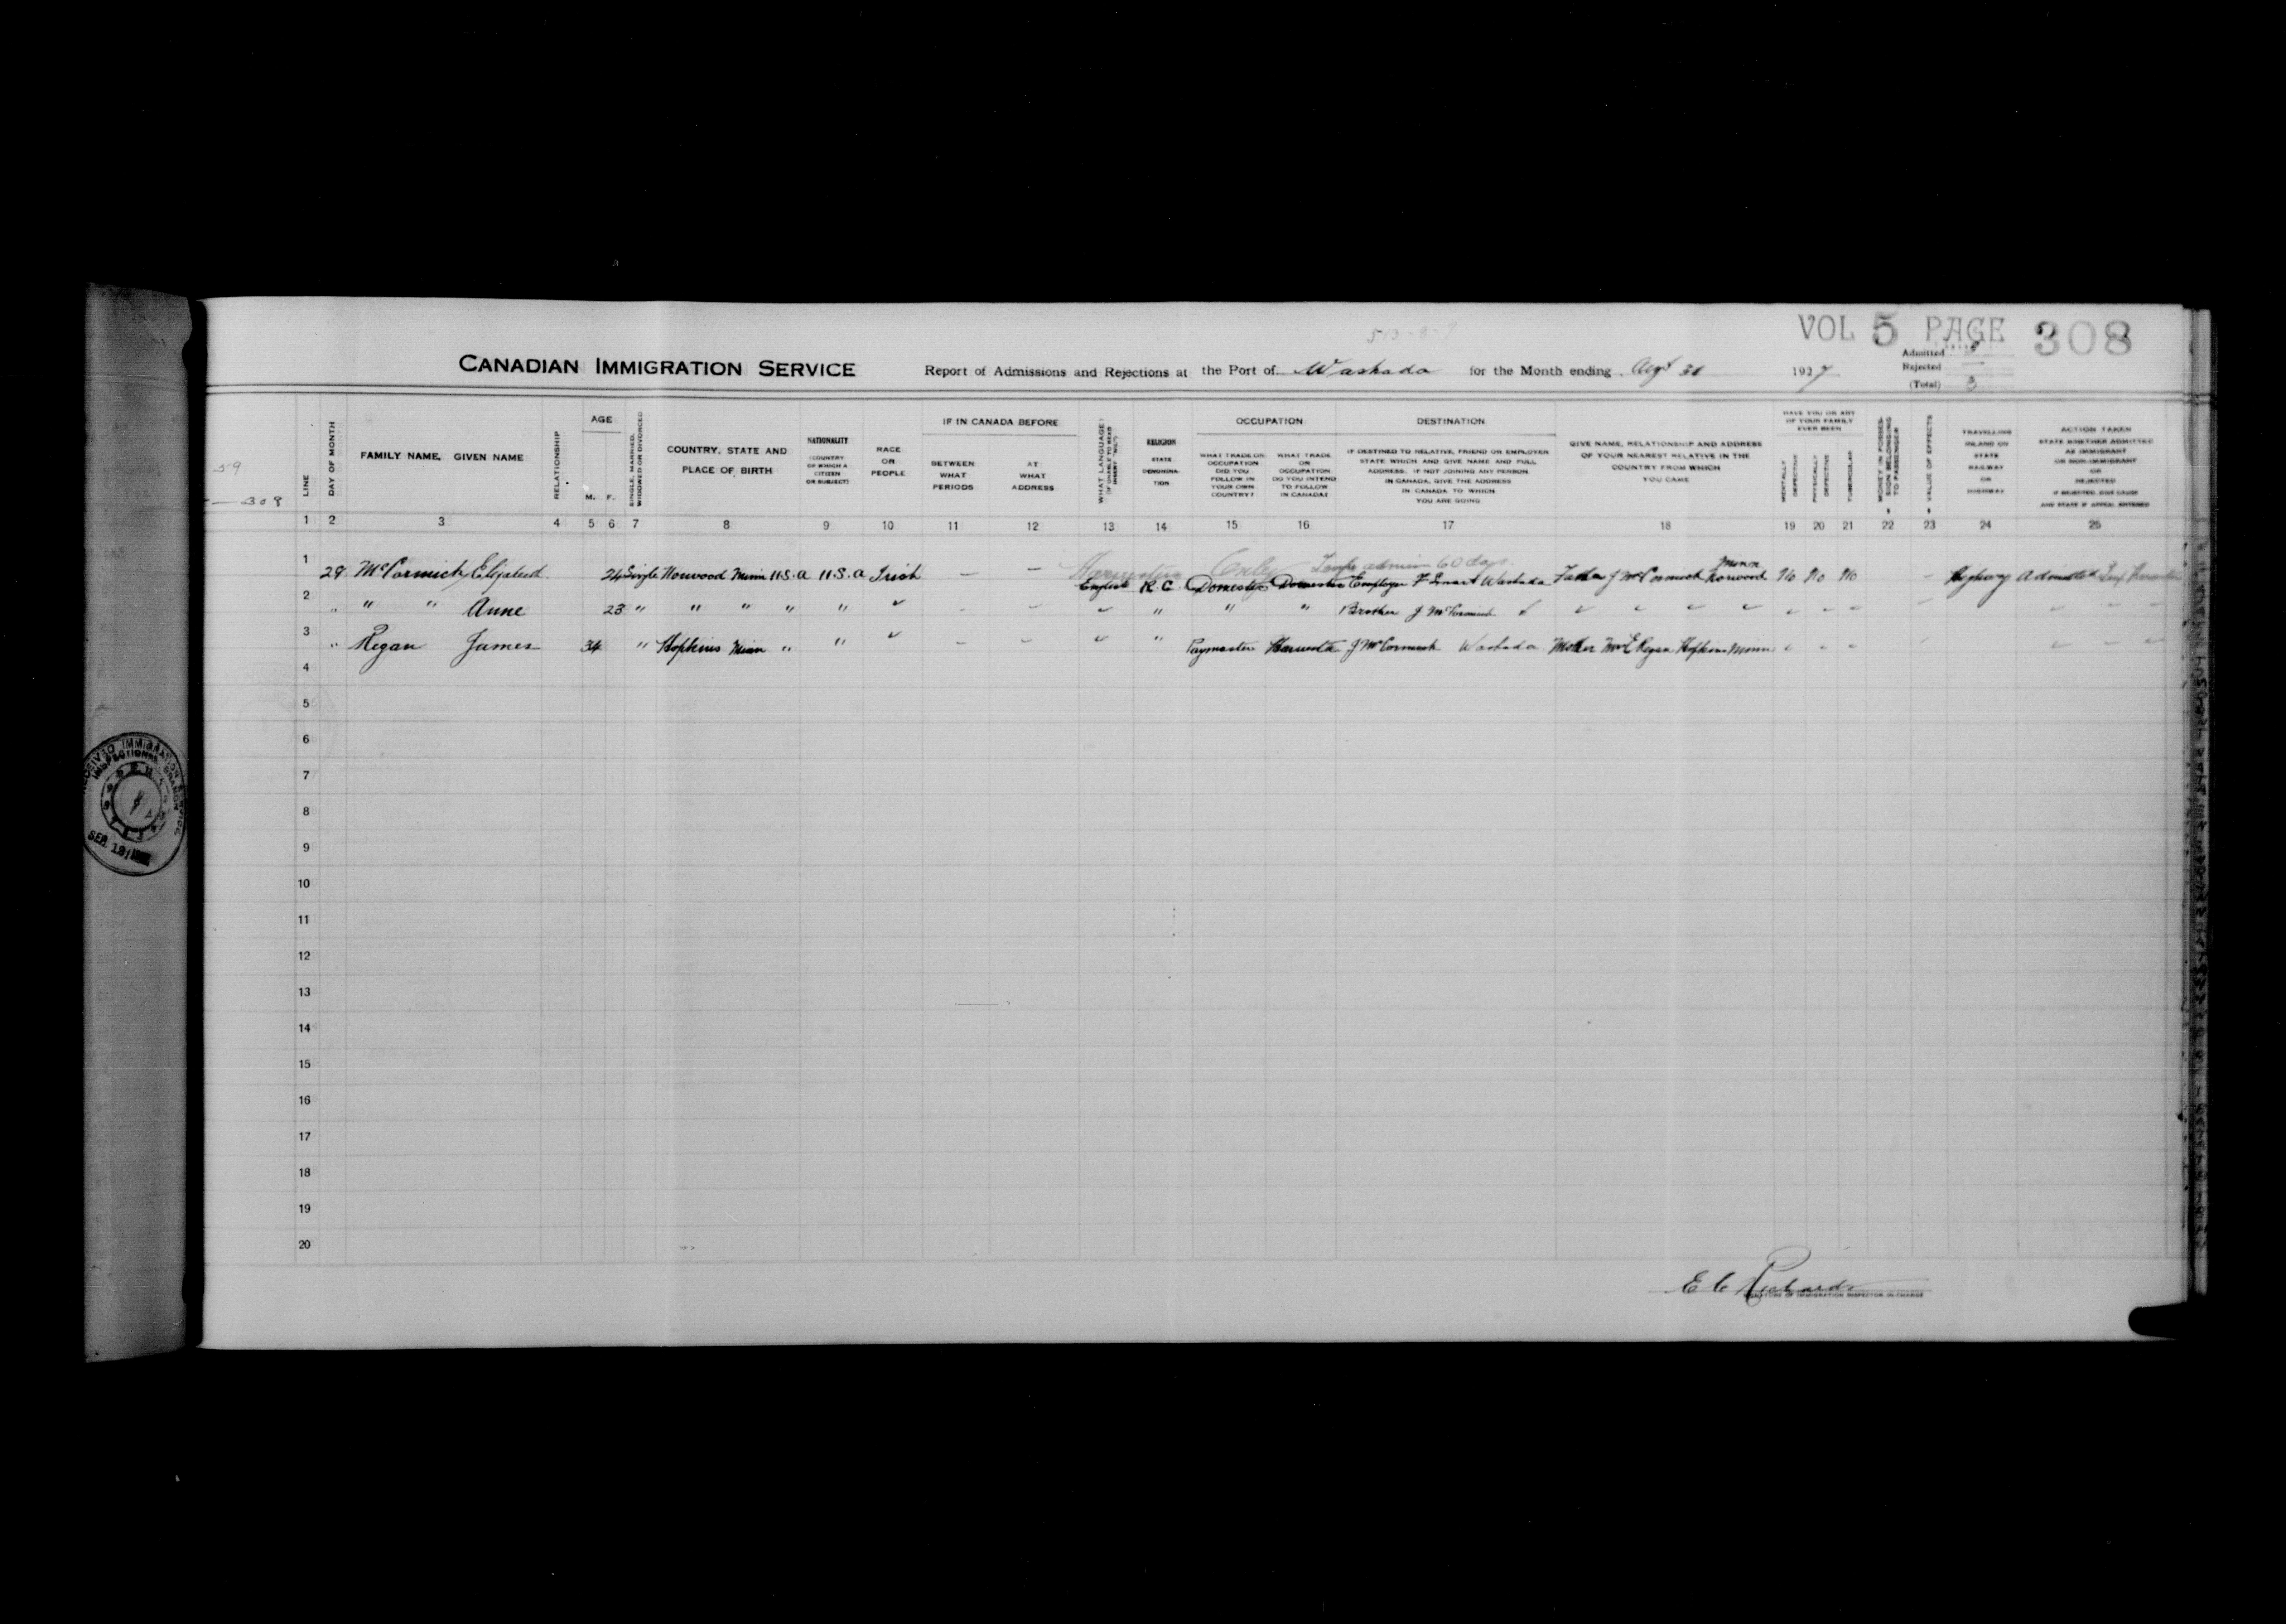 513-8-7
VOL 5 PAGE 308
CANADIAN IMMIGRATION SERVICE Report of Admissions and Rejections at the Port of Waskada for the Month ending Augt 31 1927
Admitted
Rejected —
(Total) 3
59
308
LINE
DAY OF MONTH
FAMILY NAME, GIVEN NAME
RELATIONSHIP
AGE
M. F.
SINGLE, MARRIED, WIDOWED OR DIVORCED
COUNTRY, STATE AND
PLACE OF BIRTH
NATIONALITY
(COUNTRY
OF WHICH A
CITIZEN
OR SUBJECT)
RACE
OR
PEOPLE
IF IN CANADA BEFORE
BETWEEN
WHAT
PERIODS
AT
WHAT
ADDRESS
WHAT LANGUAGE?
RELIGION
STATE
DENOMINA-
TION
OCCUPATION
WHAT TRADE OR
OCCUPATION
DID YOU
FOLLOW IN
YOUR OWN
COUNTRY?
WHAT TRADE
OR
OCCUPATION
DO YOU INTEND
TO FOLLOW
IN CANADA?
DESTINATION
IF DESTINED TO RELATIVE, FRIEND OR EMPLOYER
STATE WHICH AND GIVE NAME AND FULL
ADDRESS. IF NOT JOINING ANY PERSON
IN CANADA, GIVE THE ADDRESS
IN CANADA TO WHICH
YOU ARE GOING
GIVE NAME, RELATIONSHIP AND ADDRESS
OF YOUR NEAREST RELATIVE IN THE
COUNTRY FROM WHICH
YOU CAME
HAVE YOU OR ANY
OF YOUR FAMILY
EVER BEEN
MENTALLY DEFECTIVE
PHYSICALLY DEFECTIVE
TUBERCULAR
MONEY IN POSSES-
SION BELONGING
TO PASSENGER
VALUE OF EFFECTS
TRAVELLING
INLAND ON
STATE
RAILWAY
OR
HIGHWAY
ACTION TAKEN
STATE WHETHER ADMITTED
AS IMMIGRANT
OR NON-IMMIGRANT
OR
REJECTED
IF REJECTED, GIVE CAUSE
AND STATE IF APPEAL ENTERED
1 2 3 4 5 6 7 8 9 10 11 12 13 14 15 16 17 18 19 20 21 22 23 24 25
Harvesters Only Temp admin 60 days
1 29 McCormick Elizabeth 24 Single Norwood Minn U.S.A U.S.A Irish — — English R C Domestic Domestic Employer F Smart Waskada Father J McCormick Norwood Minn No No No Highway Admitted
2 " " " Anne 23 " " " " " " " " Brother J McCormick
3 " Regan James 34 " Hopkins Minn " " " Paymaster J McCormick Waskada Mother Mrs E Regan Hopkins Minn
4
5
6
7
8
9
10
11
12
13
14
15
16
17
18
19
20
E C Richards
SIGNATURE OF IMMIGRATION INSPECTOR-IN-CHARGE
RECEIVED IMMIGRATION SERVICE
INSPECTIONAL BRANCH
SEP. 19